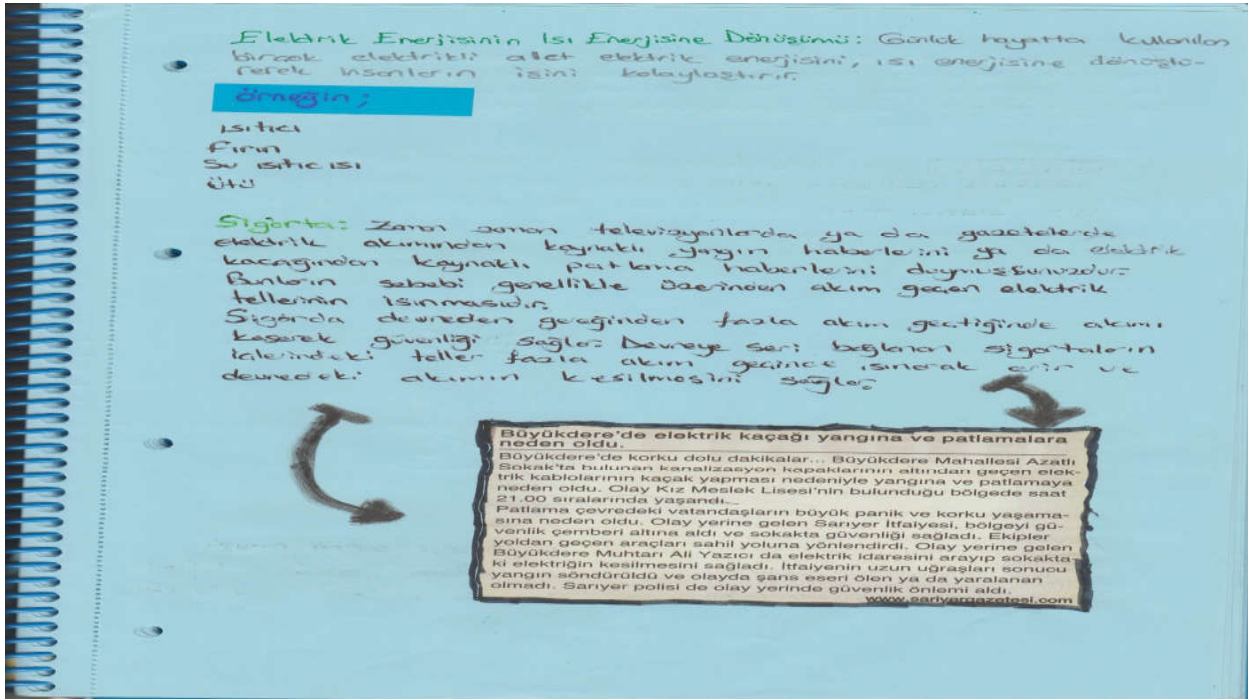 Elektrik Enerjisinin Isı Enerjisine Dönüşümü: Günlük hayatta kullanılan
birçok elektrikli alet elektrik enerjisini, ısı enerjisine dönüştü-
rerek insanların işini kolaylaştırır.
örneğin;
ısıtıcı
Fırın
Su ısıtıcısı
Ütü
Sigorta: Zaman zaman televizyonlarda ya da gazetelerde
elektrik akımından kaynaklı yangın haberlerini ya da elektrik
kaçağından kaynaklı patlama haberlerini duymuşsunuzdur.
Bunların sebebi genellikle üzerinden akım geçen elektrik
tellerinin ısınmasıdır.
Sigorda devreden gereğinden fazla akım geçtiğinde akımı
keserek güvenliği sağlar. Devreye seri bağlanan sigortaların
içlerindeki teller fazla akım geçince ısınarak erir ve
devredeki akımın kesilmesini sağlar.
Büyükdere'de elektrik kaçağı yangına ve patlamalara
neden oldu.
Büyükdere'de korku dolu dakikalar... Büyükdere Mahallesi Azatlı
Sokak'ta bulunan kanalizasyon kapaklarının altından geçen elek-
trik kablolarının kaçak yapması nedeniyle yangına ve patlamaya
neden oldu. Olay Kız Meslek Lisesi'nin bulunduğu bölgede saat
21.00 sıralarında yaşandı...
Patlama çevredeki vatandaşların büyük panik ve korku yaşama-
sına neden oldu. Olay yerine gelen Sarıyer İtfaiyesi, bölgeyi gü-
venlik çemberi altına aldı ve sokakta güvenliği sağladı. Ekipler
yoldan geçen araçları sahil yoluna yönlendirdi. Olay yerine gelen
Büyükdere Muhtarı Ali Yazıcı da elektrik idaresini arayıp sokakta-
ki elektriğin kesilmesini sağladı. İtfaiyenin uzun uğraşları sonucu
yangın söndürüldü ve olayda şans eseri ölen ya da yaralanan
olmadı. Sarıyer polisi de olay yerinde güvenlik önlemi aldı.
www.sariyergazetesi.com